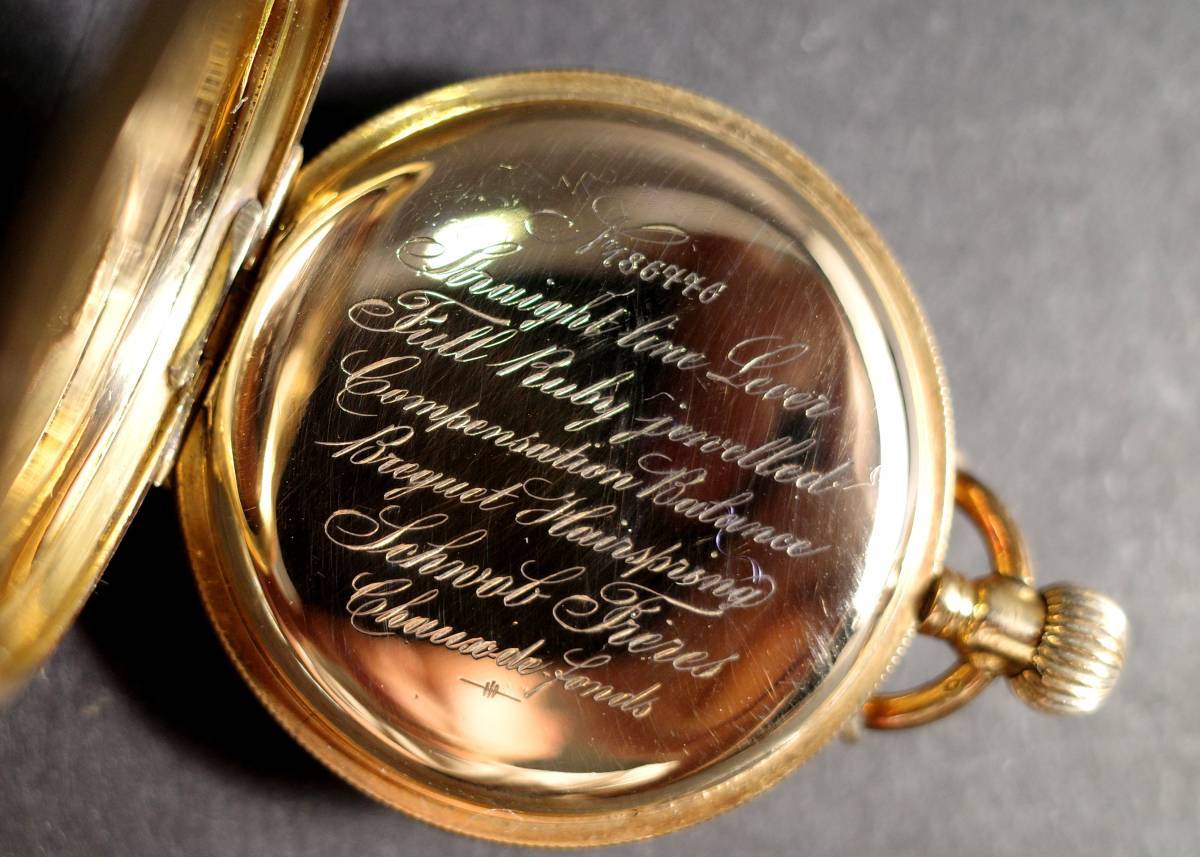 Straight line Lever
Full Ruby jewelled
Compensation Balance
Breguet Hairspring
Schwob Frères
Chaux-de-fonds